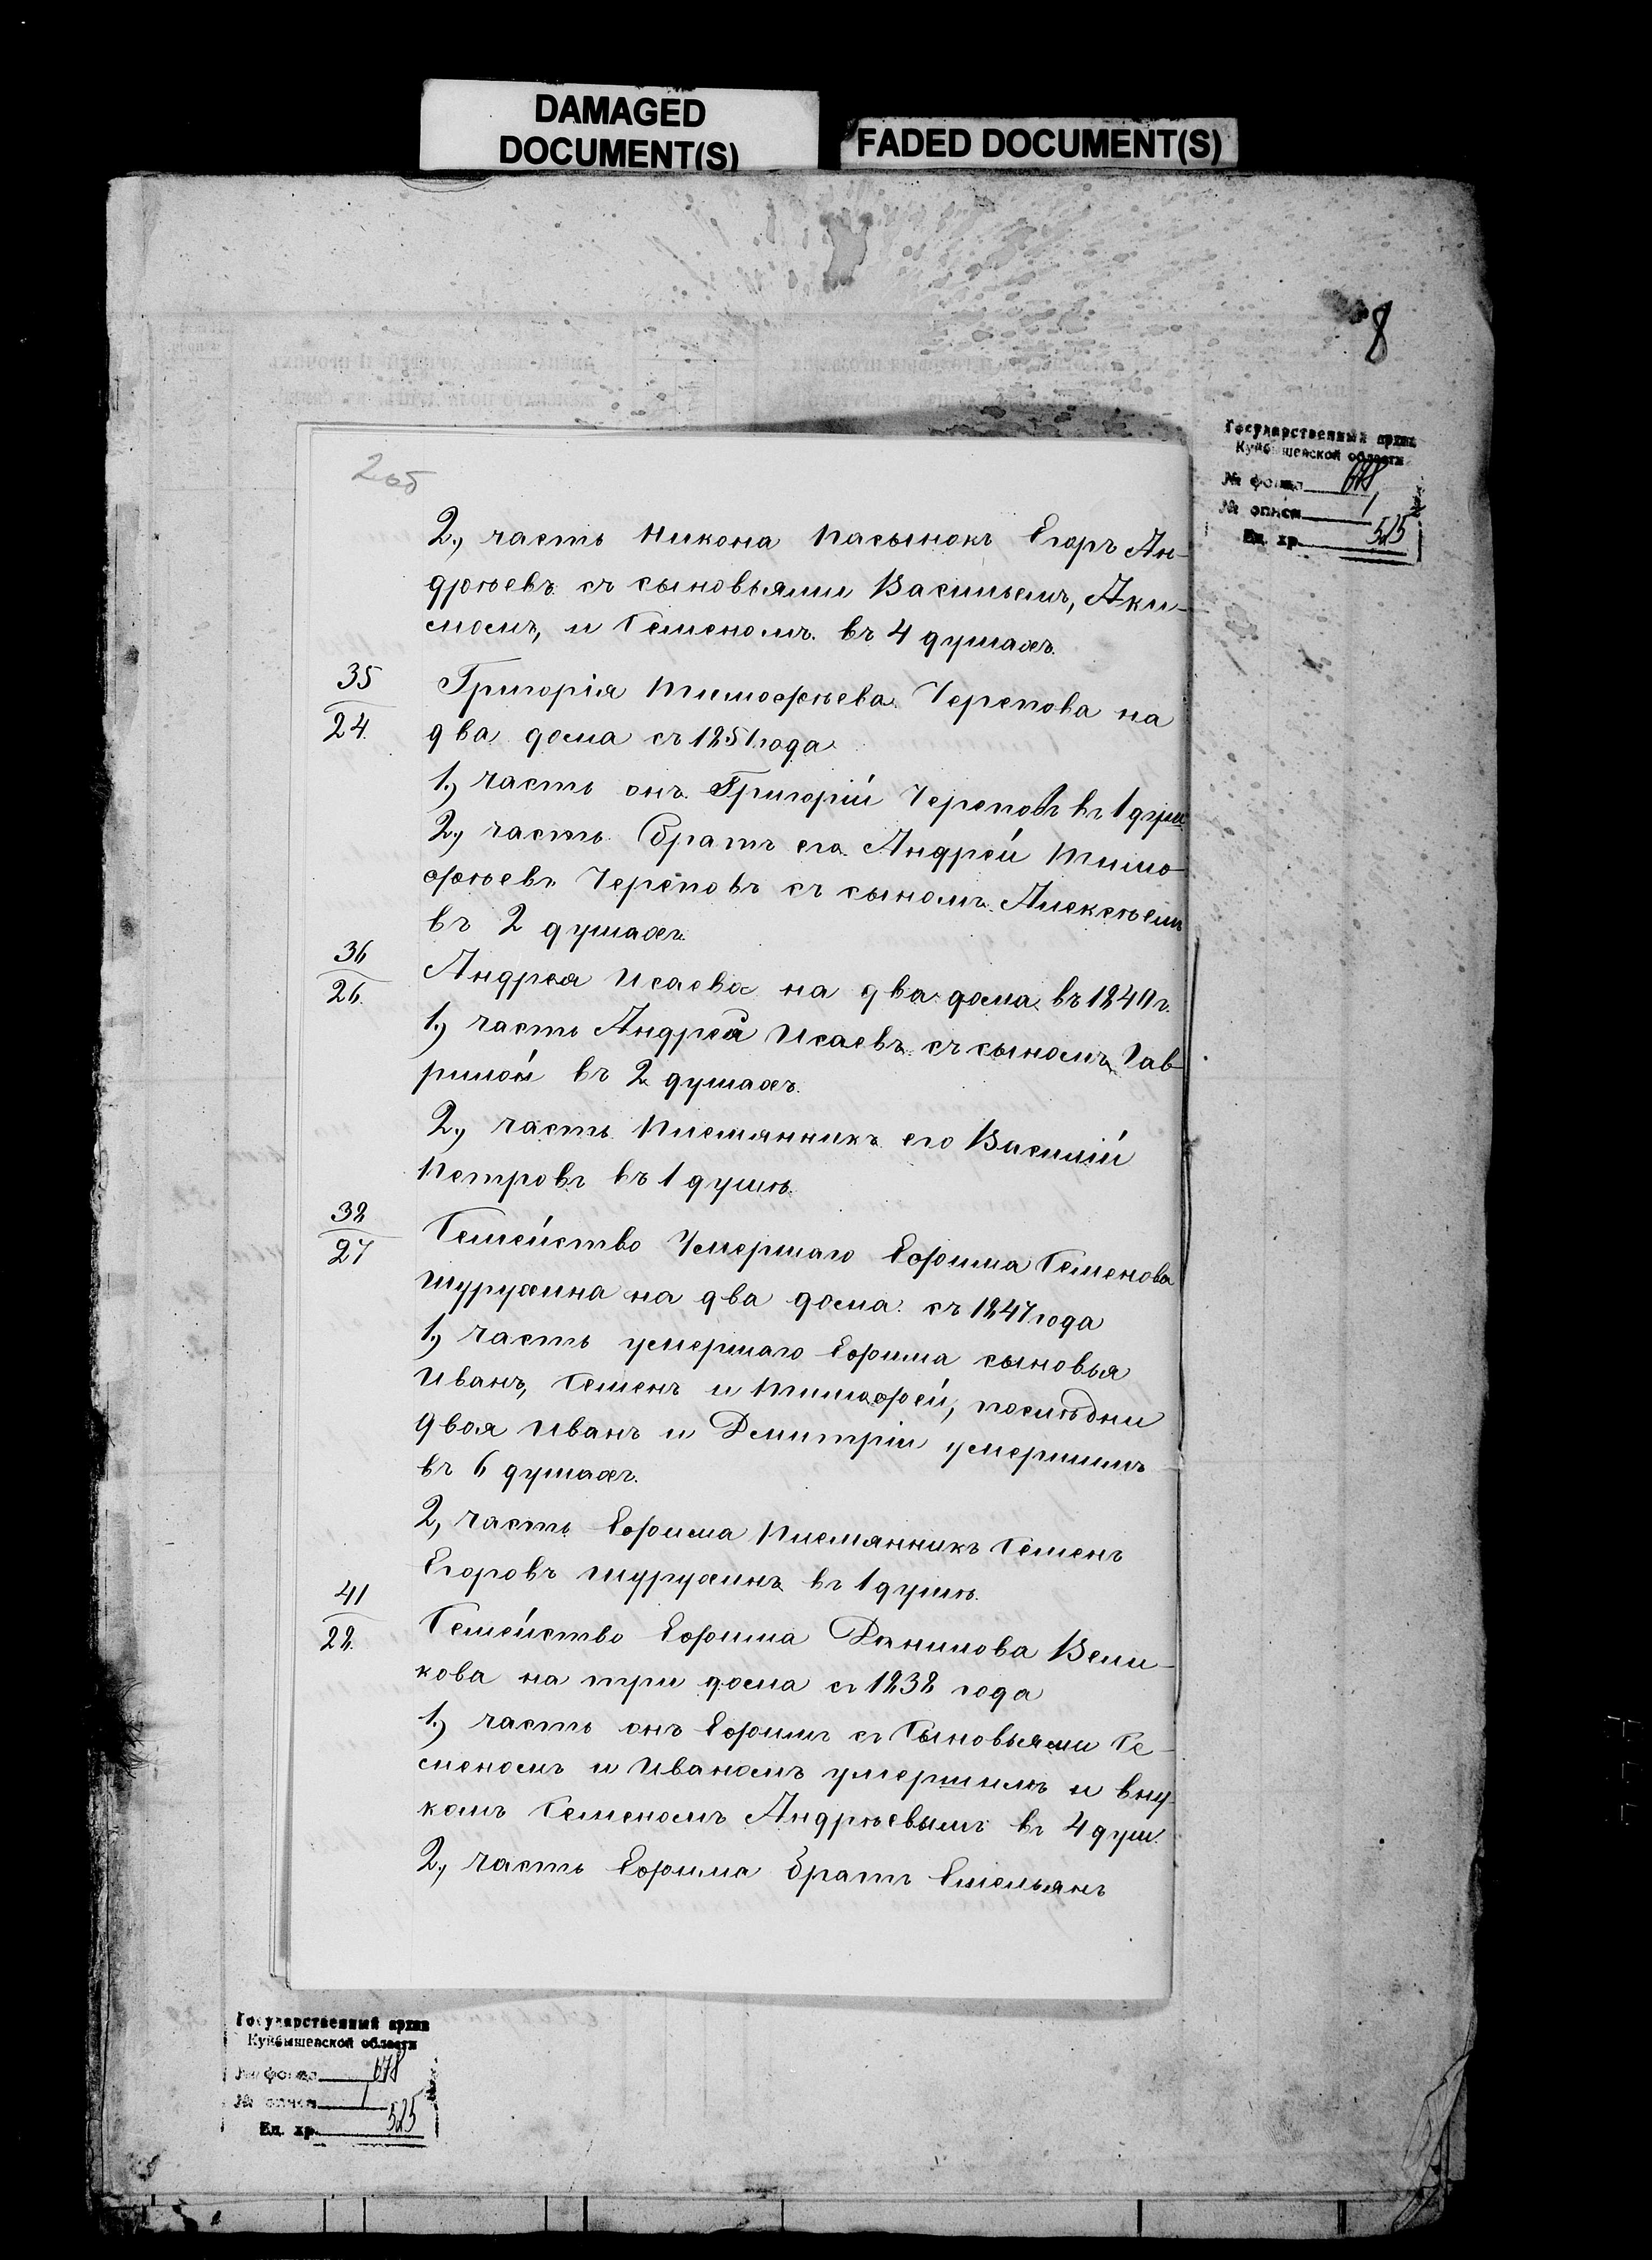 DAMAGED
DOCUMENT(S)
FADED DOCUMENT(S)
8
Государственный архив
Куйбышевской области
№ фонда 678
№ описи 1
Ед. хр. 525
2об
2., часть Никона пасынокъ Егоръ Ан-
дрѣевъ съ сыновьями Васильемъ, Аки-
момъ, и Семеномъ въ 4 душахъ.
35
24.
Григорія Тимофѣева Черепова на
два дома съ 1851 года.
1., часть онъ Григорій Череповъ въ 1 душ
2., часть братъ его Андрей Тимо-
фѣевъ Череповъ съ сыномъ Алексѣемъ
въ 2 душахъ.
36
26.
Андрея Исаева на два дома въ 1840 г.
1., часть Андрей Исаевъ съ сыномъ Гав-
рилой въ 2 душахъ.
2., часть Племянникъ его Василій
Петровъ въ 1 душѣ.
38
27
Семейство Умершаго Ефима Семенова
Шурухина на два дома съ 1847 года
1., часть умершаго Ефима сыновья
Иванъ, Семенъ и Тимофей, послѣдни
двоя Иванъ и Дмитрій умершимъ
въ 6 душахъ.
2, часть Ефима Племянникъ Семенъ
Егоровъ Шурухинъ въ 1 душѣ.
41
28.
Семейство Ефима Данилова Вели-
кова на три дома съ 1838 года
1., часть онъ Ефимъ съ Сыновьями Се-
меномъ и Иваномъ умершимъ и вну-
комъ Семеномъ Андрѣевымъ въ 4 душ.
2., часть Ефима братъ Емельянъ
Государственный архив
Куйбышевской области
№ фонда 678
№ описи 1
Ед. хр. 525